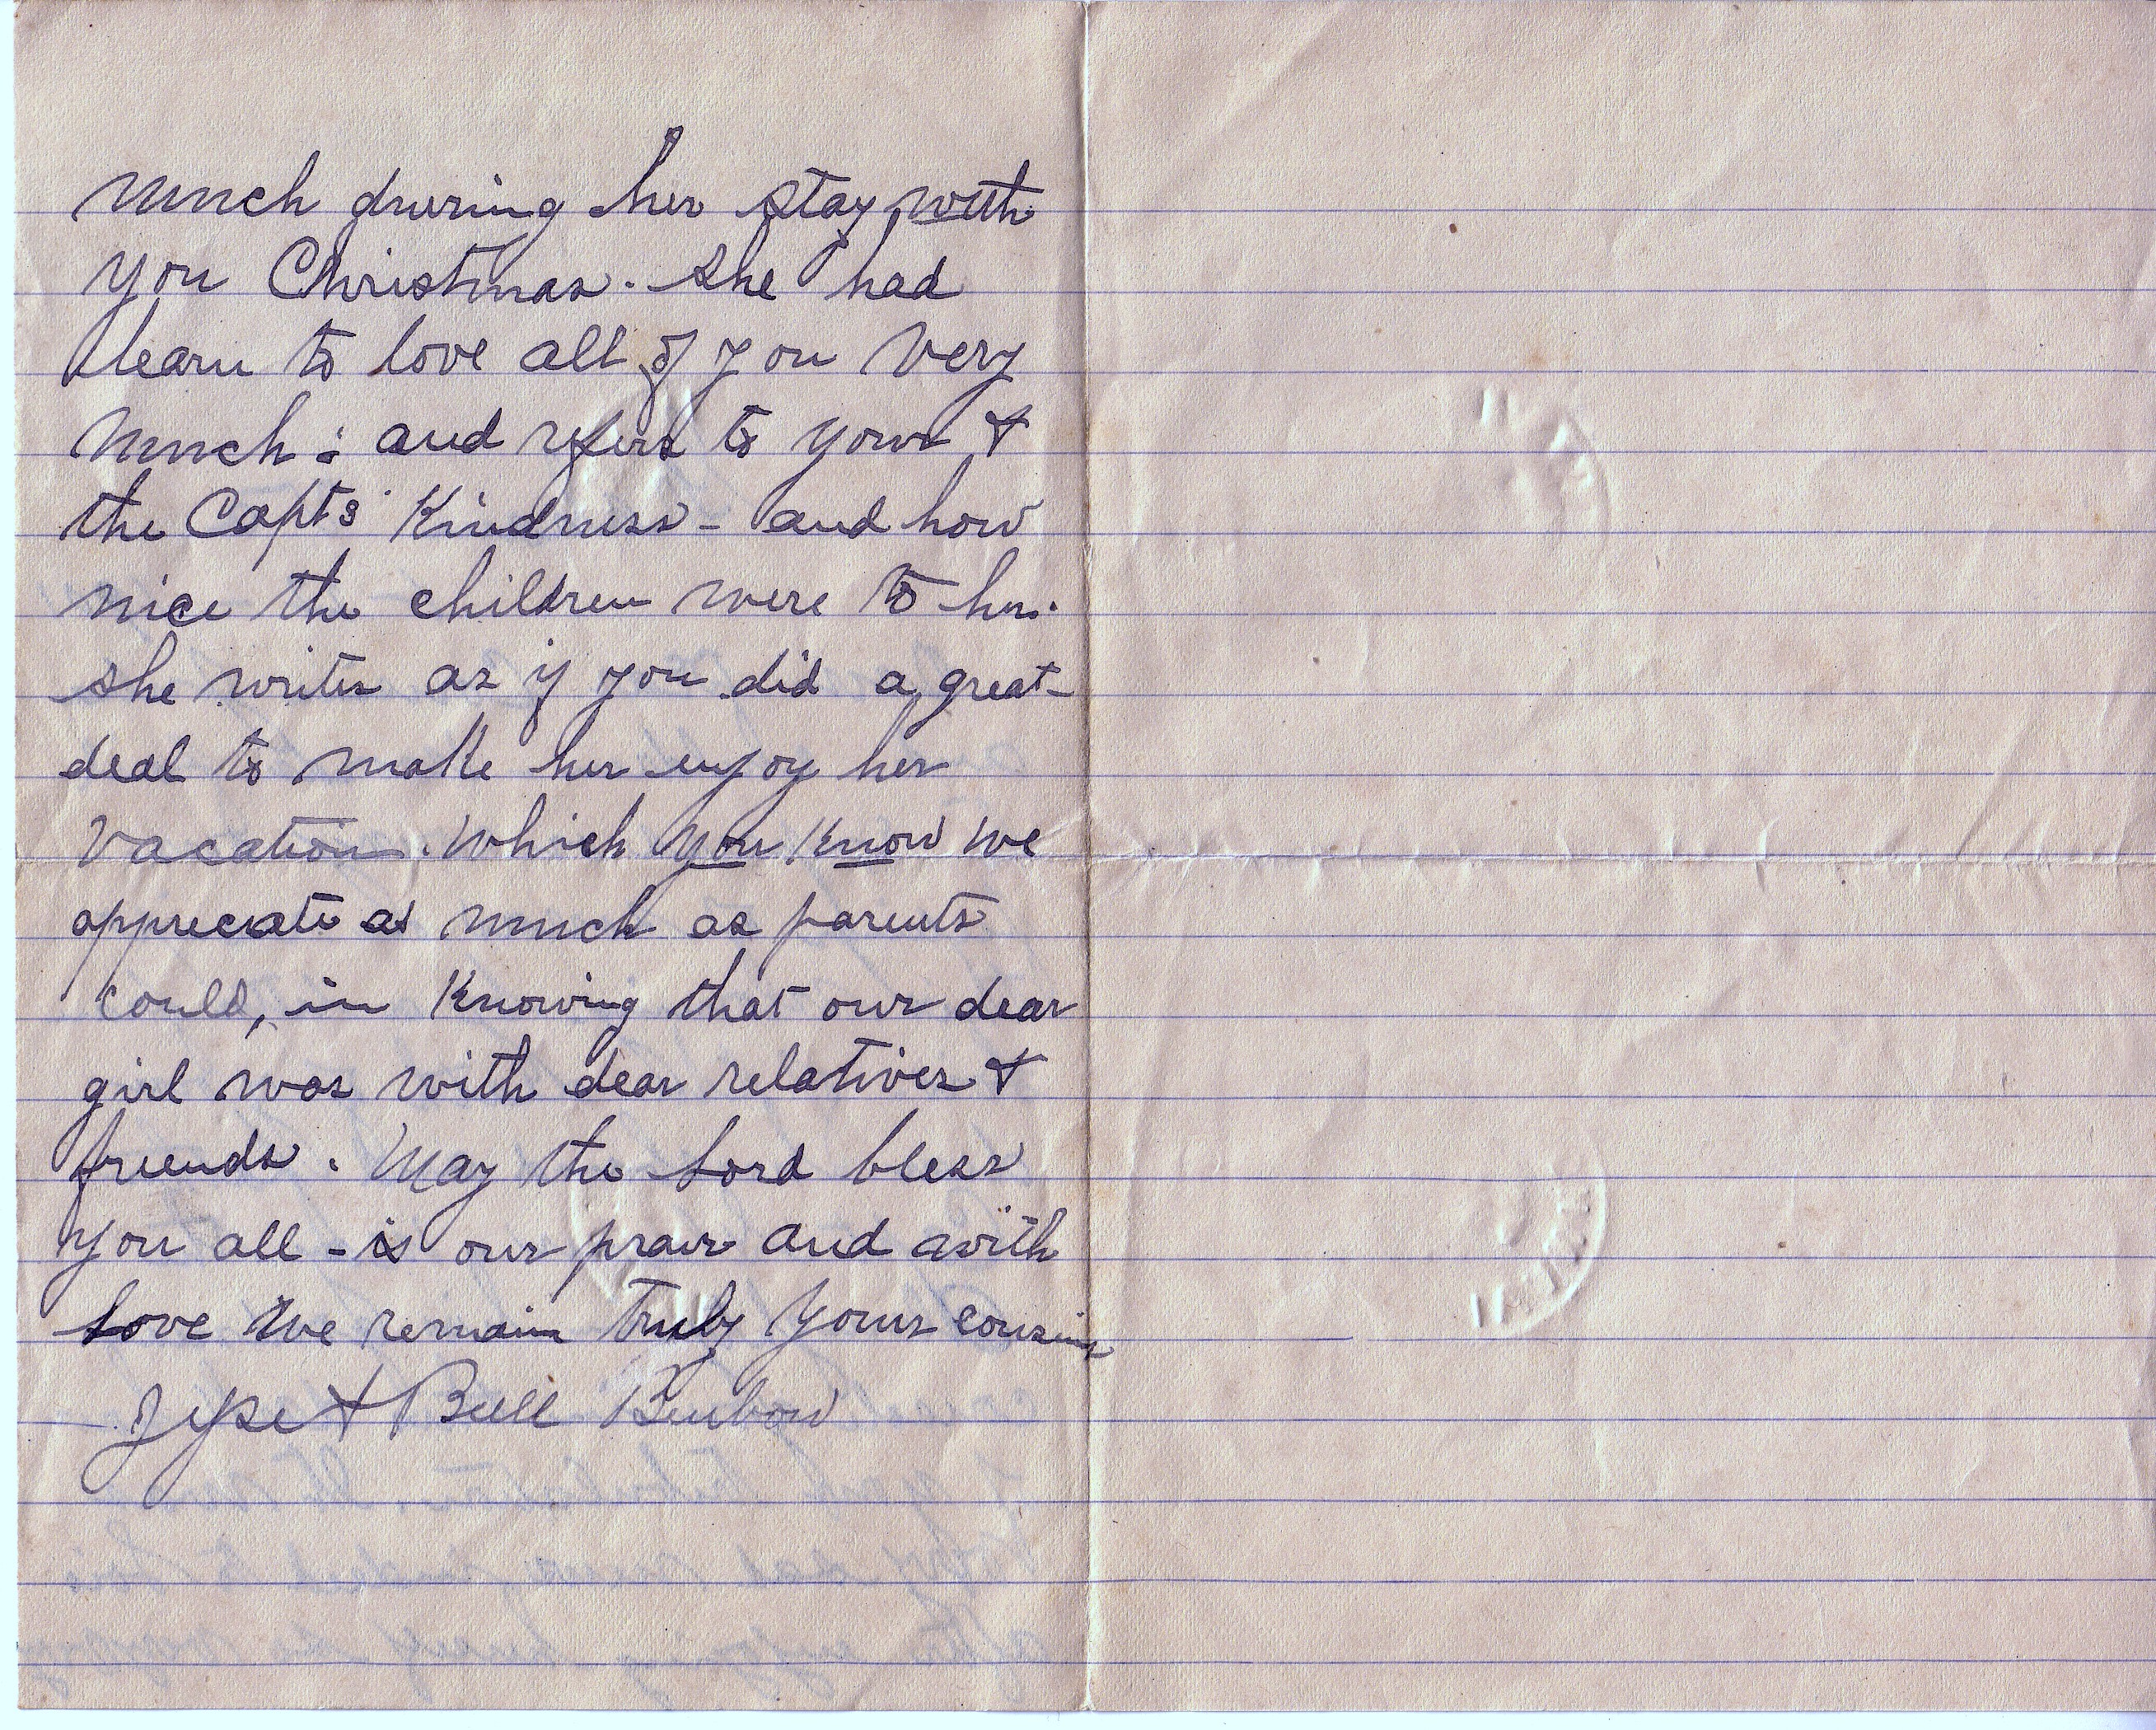 much druring her stay with
you Christmas. She had
learn to love all of you very
much: and refers to your &
the Capts' Kindness - and how
nice the children were to her.
she writes as if you did a great
deal to make her enjoy her
vacation. Which you know we
appreciate as much as parents
could, in Knowing that our dear
girl was with dear relatives &
friends. May the Lord bless
you all - is our prair and with
Love We remain Truly yours cousins
& Bell Benbow